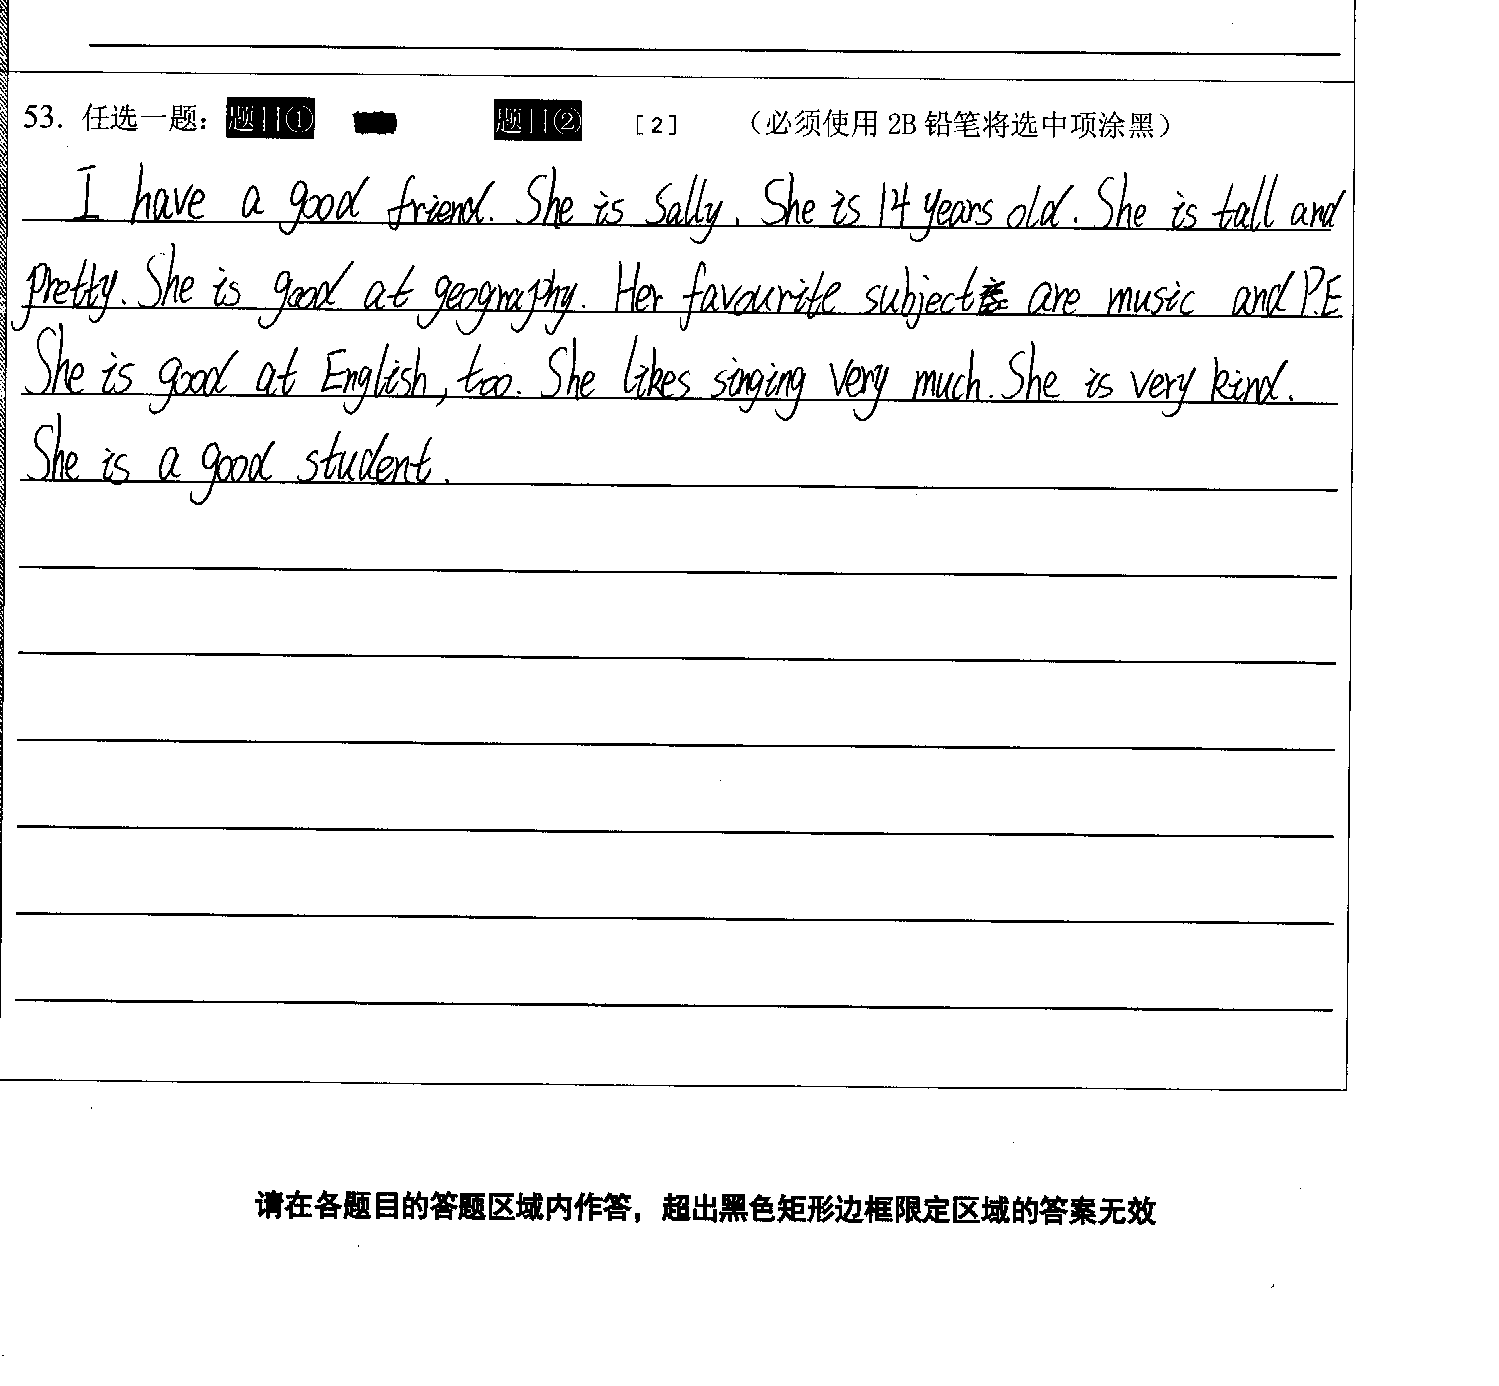 53. 任选一题: 题目① 题目② [2] （必须使用 2B 铅笔将选中项涂黑）
I have a good friend. She is Sally. She is 14 years old. She is tall and
pretty. She is good at geography. Her favourite subject are music and P.E
She is good at English, too. She likes singing very much. She is very kind.
She is a good student.
请在各题目的答题区域内作答，超出黑色矩形边框限定区域的答案无效